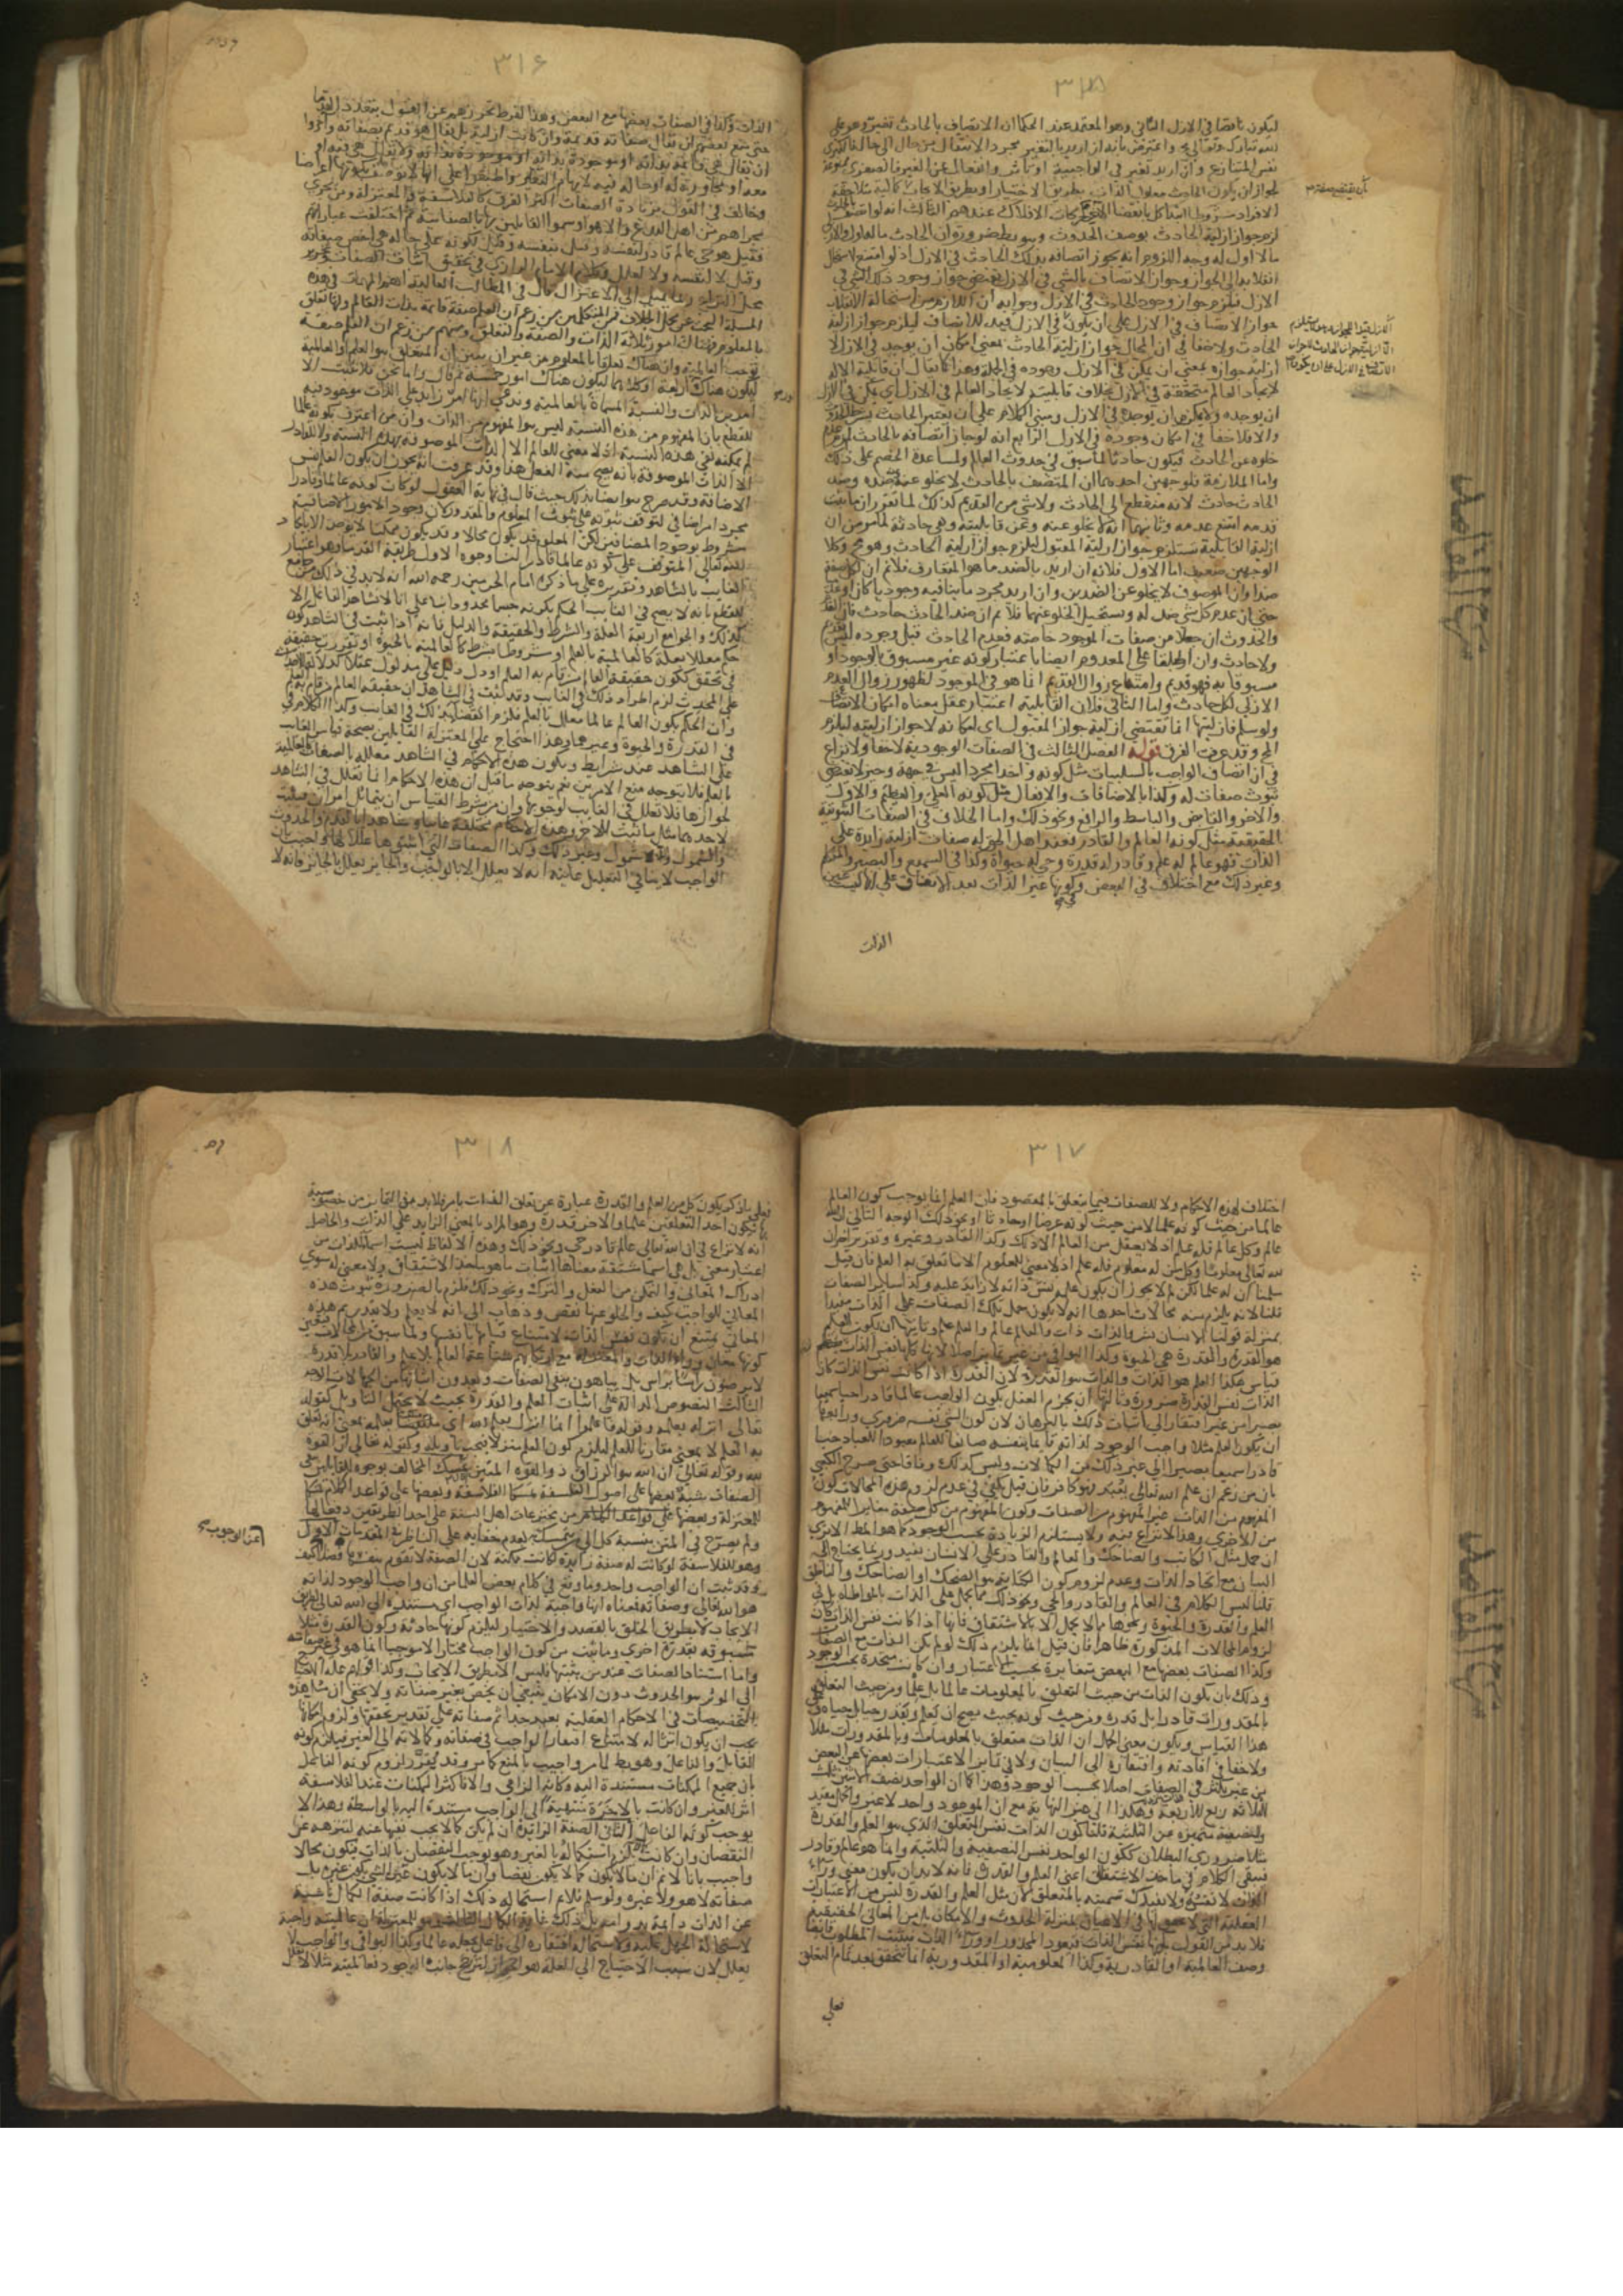 ٣١٥
ليكون ناقصا في الازل الثاني وهو المعتمد عند الحكما ان الاتصاف بالحادث تغير وهو على
الله تبارك وتعالى مح واعترض بانه ان اريد بالتغير مجرد الانتقال من حال الى حال فالكبرى
نفس المتنازع وان اريد تغير في الواجبية او تاثر وانفعال عن الغير فالصغرى ممنوعة
لجواز ان يكون الحادث معلول الذات بطريق الاختيار او بطريق الايجاب بان كمالية متلاحقة
الافراد مشروط ابتدا كل بانقضا الاخر كحركات الافلاك عندهم الثالث انه لو اتصف بالحادث
لزم جواز ازلية الحادث بوصف الحدوث وهو بط ضرورة ان الحادث ما له اول والازلي
ما لا اول له وجه اللزوم انه يجوز اتصافه بذلك الحادث في الازل اذ لو امتنع لاستحال
انقلابه الى الجواز وجواز الاتصاف بالشي في الازل يقتضي جواز وجود ذلك الشي في
الازل فيلزم جواز وجود الحادث في الازل وجوابه ان اللازم من استحالة الانقلاب
جواز الاتصاف في الازل على ان يكون في الازل قيدا للاتصاف ليلزم جواز ازلية
الحادث ولا خفا في ان المحال جواز ازلية الحادث بمعنى امكان ان يوجد في الازل لا
ازلية جوازه بمعنى ان يمكن في الازل وجوده في الجملة وهذا كما يقال ان قابلية الاله
لايجاد العالم متحققة في الازل بخلاف قابليته لايجاد العالم في الازل اي يمكن في الازل
ان يوجده ولا يمكن ان يوجده في الازل ومبنى الكلام على ان يعتبر الحادث بشرط الحدوث
والا فلا خفا في امكان وجوده في الازل الرابع انه لو جاز اتصافه بالحادث لزم عدم
خلوه عن الحادث فيكون حادثا لما سبق في حدوث العالم ولمساعدة الخصم على ذلك
واما الملازمة فلوجهين احدهما ان المتصف بالحادث لا يخلو عنه وعن ضده وضد
الحادث حادث لانه منقطع الى الحادث ولا شي من القديم كذلك لما تقرر ان ما ثبت
قدمه امتنع عدمه وثانيهما انه لا يخلو عنه وعن قابليته وهي حادثة لما مر من ان
ازلية القابلية تستلزم جواز ازلية المقبول فيلزم جواز ازلية الحادث وهو مح وكلا
الوجهين ضعيف اما الاول فلانه ان اريد بالضد ما هو المتعارف فلا نم ان لكل صفة
ضدا وان الموصوف لا يخلو عن الضدين وان اريد مجرد ما ينافيه وجوديا كان او عدميا
حتى ان عدم كل شي ضد له ويستحيل الخلو عنهما فلا نم ان ضد الحادث حادث فان القدم
والحدوث ان جعلا من صفات الموجود خاصة فعدم الحادث قبل وجوده ليس بقديم
ولا حادث وان اطلقا على المعدوم ايضا باعتبار كونه غير مسبوق بالوجود او
مسبوقا به فهو قديم وامتناع زوال القديم انما هو في الموجود لظهور زوال العدم
الازلي لكل حادث واما الثاني فلان القابلية اعتبار عقلي معناه امكان الاتصاف
ولو سلم فازليتها انما تقتضي ازلية جواز المقبول اي امكانه لا جواز ازليته ليلزم
المح وقد عرفت الفرق قوله الفصل الثالث في الصفات الوجودية لا خفا ولا نزاع
في ان اتصاف الواجب بالسلبيات مثل كونه واحدا مجردا ليس في جهة وحيز لا يقتضي
ثبوت صفات له وكذا بالاضافات والافعال مثل كونه العلي والعظيم والاول
والاخر والقابض والباسط والرافع ونحو ذلك واما الخلاف في الصفات الثبوتية
الحقيقية مثل كونه العالم والقادر فعند اهل الحق له صفات ازلية زايدة على
الذات فهو عالم له علم وقادر له قدرة وحي له حيوة وكذا في السميع والبصير والمتكلم
وغير ذلك مع اختلاف في البعض وكونها غير الذات بعد الاتفاق على انها ليست عين
الذات
٣١٦
الذات وكذا في الصفات بعضها مع البعض وهذا لفرط تحرزهم عن القول بتعدد القدما
حتى منع بعضهم ان يقال صفاته قديمة وان كانت ازلية بل يقال هو قديم بصفاته واثروا
ان يقال هي قائمة بذاته او موجودة بذاته ولا يقال هي فيه او
معه او مجاورة له او حالة فيه لايهام التغاير واطبقوا على انها لا توصف بكونها اعراضا
وخالف في القول بزيادة الصفات اكثر الفرق كالفلاسفة والمعتزلة ومن يجري
مجراهم من اهل البدع والاهوا وسموا القايلين بها بالصفاتية ثم اختلفت عباراتهم
فقيل هو حي عالم قادر لنفسه وقيل بنفسه وقيل لكونه على حالة هي اخص صفاته
وقيل لا لنفسه ولا لعلل وكلام الامام الرازي في تحقيق اثبات الصفات وتحرير
محل النزاع ربما يميل الى الاعتزال قال في المطالب العالية اهم المهمات في هذه
المسئلة البحث عن محل الخلاف فمن المتكلمين من زعم ان العلم صفة قايمة بذات العالم ولها تعلق
بالمعلوم فهناك امور ثلاثة الذات والصفة والتعلق ومنهم من زعم ان العلم صفة
توجب العالمية وان هناك تعلقا بالمعلوم من غير ان يبين ان المتعلق هو العلم او العالمية
ليكون هناك اربعة او كلاهما ليكون هناك امور خمسة ثم قال واما نحن فلا نثبت الا
امرين الذات والنسبة المسماة بالعالمية وندعي انها امر زايد على الذات موجود فيه
للقطع بان المفهوم من هذه النسبة ليس هو المفهوم من الذات وان من اعترف بكونه عالما
لم يمكنه نفي هذه النسبة اذ لا معنى للعالم الا الذات الموصوفة بهذه النسبة ولا للقادر
الا الذات الموصوفة بانه يصح منه الفعل هذا وقد عرفت انه يجوز ان يكون العلم نفس
الاضافة وقد صرح هو ايضا بذلك حيث قال في نهاية العقول لو كان كونه عالما وقادرا
مجرد امر اضافي لتوقف ثبوته على ثبوت المعلوم والمقدور لان وجود الامور الاضافية
مشروط بوجود المضافين لكن المعلوم قد يكون محالا وقد يكون ممكنا لا يوجد الا بايجاد
الله تعالى المتوقف على كونه عالما قادرا لنا وجوه الاول طريقة القدما وهو اعتبار
الغايب بالشاهد وتقريره على ما ذكره امام الحرمين رحمه الله انه لا بد في ذلك من جامع
للقطع بانه لا يصح في الغايب الحكم بكونه جسما محدودا بنا على انا لا نشاهد الفاعل الا
كذلك والجوامع اربعة العلة والشرط والحقيقة والدليل فانه اذا ثبت في الشاهد كون
حكم معللا بعلة كالعالمية بالعلم او مشروطا بشرط كالعالمية بالحيوة او تقررت حقيقة
في محقق ككون حقيقة العالم من قام به العلم او دل دليل على مدلول عقلا كدلالة الاحداث
على المحدث لزم اطراد ذلك في الغايب وقد ثبت في الشاهد ان حقيقة العالم من قام به العلم
وان الحكم بكون العالم عالما معلل بالعلم فلزم القضا بذلك في الغايب وكذا الكلام في
في القدرة والحيوة وغيرهما وهذا احتجاج على المعتزلة القايلين بصحة قياس الغايب
على الشاهد عند شرايط وبكون هذه الاحكام في الشاهد معللة بالصفات كالعالمية
بالعلم فلا يتوجه منع الامرين نعم يتوجه ما قيل ان هذه الاحكام انما تعلل في الشاهد
لجوازها فلا تعلل في الغايب لوجوبها وان من شرط القياس ان يتماثل امران فيثبت
لاحدهما مثل ما ثبت للاخر وهذه الاحكام مختلفة غايبا وشاهدا بالقدم والحدوث
والشمول واللاشمول وغير ذلك وكذا الصفات التي اثبتوها عللا لها واجيب بان
الواجب لا ينافي التعليل غايته انه لا يعلل الا بالواجب والجايز يعلل بالجايز فانه لا
٣١٧
اختلاف لهذه الاحكام ولا للصفات فيما يتعلق بالمقصود فان العلم انما يوجب كون العالم
عالما من حيث كونه علما لا من حيث كونه عرضا او حادثا او نحو ذلك الوجه الثاني الله
عالم وكل عالم فله علم اذ لا يعقل من العالم الا ذلك وكذا القادر وغيره وتقرير اخر ان
لله تعالى معلوما وكل من له معلوم فله علم اذ لا معنى للمعلوم الا ما تعلق به العلم فان قيل
سلمنا ان له علما لكن لم لا يجوز ان يكون علمه نفس ذاته لا زايدا عليه وكذا ساير الصفات
قلنا لانه يلزم منه محالات احدها انه لا يكون حمل تلك الصفات على الذات مفيدا
بمنزلة قولنا الانسان بشر والذات ذات والعالم عالم والعلم علم وثانيها ان يكون العلم
هو القدرة والقدرة هي الحيوة وكذا البواقي من غير تمايز اصلا لانها كلها نفس الذات
قياس هكذا العلم هو الذات والذات هو القدرة لان القدرة اذا كانت نفس الذات كان
الذات نفس القدرة ضرورة وثالثها ان يجزم العقل بكون الواجب عالما قادرا حيا سميعا
بصيرا من غير افتقار الى اثبات ذلك بالبرهان لان كون الشي نفسه ضروري ورابعها
ان يكون العلم مثلا واجب الوجود لذاته قايما بنفسه صانعا للعالم معبودا للعباد حيا
قادرا سميعا بصيرا الى غير ذلك من الكمالات وليس كذلك وفاقا حتى صرح الكعبي
بان من زعم ان علم الله تعالى يعبد فهو كافر فان قيل يكفي في عدم لزوم هذه المحالات كون
المفهوم من الذات غير المفهوم من الصفات وكون المفهوم من كل صفة مغايرا للمفهوم
من الاخرى وهذا لا نزاع فيه ولا يستلزم الزيادة بحسب الوجود كما هو المط الا ترى
ان حمل مثل الكاتب والضاحك والعالم والقادر على الانسان يفيد وربما يحتاج الى
البيان مع اتحاد الذات وعدم لزوم كون الكتابة هو الضحك او الضاحك والناطق
قلنا ليس الكلام في العالم والقادر والحي ونحو ذلك مما يحمل على الذات بالمواطاة بل في
العلم والقدرة والحيوة ونحوها مما لا يحمل الا بالاشتقاق فانها اذا كانت نفس الذات كان
لزوم المحالات المذكورة ظاهرا فان قيل انما يلزم ذلك لو لم يكن الذات مع الصفات
وكذا الصفات بعضها مع البعض متغايرة بحسب الاعتبار وان كانت متحدة بحسب الوجود
وذلك بان يكون الذات من حيث التعلق بالمعلومات عالما بل علما ومن حيث التعلق
بالمقدورات قادرا بل قدرة ومن حيث كونه بحيث يصح ان يعلم ويقدر حيا بل حياة وعلى
هذا القياس ويكون معنى الحمل ان الذات متعلق بالمعلومات وبالمقدورات مثلا
ولا خفا في افادته وافتقاره الى البيان ولا في تمايز الاعتبارات بعضها عن البعض
من غير تكثر في الصفات اصلا بحسب الوجود وهذا كما ان الواحد نصف الاثنين ثلث
الثلاثة ربع الاربعة وهكذا الى غير النهاية مع ان الموجود واحد لا غير والحمل مفيد
والنصفية متميزة عن الثلثية قلنا كون الذات نفس التعلق الذي هو العلم والقدرة
مثلا ضروري البطلان ككون الواحد نفس النصفية والثلثية وانما هو عالم وقادر
فيبقى الكلام في ماخذ الاشتقاق اعني العلم والقدرة فانه لا بد ان يكون معنى وراء
الذات لا نفسه ولا يفيدك تسميته بالتعلق لان مثل العلم والقدرة ليس من الاعتبارات
العقلية التي لا تحقق لها في الاعيان بمنزلة الحدوث والامكان بل من المعاني الحقيقية
فلا بد من القول بكونها نفس الذات فيعود المحذور او وراء الذات فيثبت المطلوب وايضا
وصف العالمية او القادرية وكذا المعلومية او المقدورية انما يتحقق بعد تمام التعلق
فعلى
٣١٨
فعلى ما ذكر يكون كل من العلم والقدرة عبارة عن تعلق الذات بامر فلا بد في التمايز من خصوصية
بها يكون احد التعلقين علما والاخر قدرة وهو المراد بالمعنى الزايد على الذات والحاصل
انه لا نزاع في ان الله تعالى عالم قادر حي ونحو ذلك وهذه الالفاظ ليست اسما للذات من
اعتبار معنى بل هي اسما مشتقة معناها اثبات ما هو ماخذ الاشتقاق ولا معنى له سوى
ادراك المعاني والتمكن من الفعل والترك ونحو ذلك فلزم بالضرورة ثبوت هذه
المعاني للواجب كيف والخلو عنها نقص وذهاب الى انه لا يعلم ولا يقدر ثم هذه
المعاني يمتنع ان يكون نفس الذات لامتناع قيامها بانفسها ولما سبق من المحالات فتعين
كونها معان وراء الذات والمعتزلة مع ارتكابهم شناعة العالم بلا علم والقادر بلا قدرة
لا يرضون راسا براس بل يباهون بنفي الصفات ويعدون اثباتها من الجهالات الوجه
الثالث النصوص الدالة على اثبات العلم والقدرة بحيث لا يحتمل التاويل كقوله
تعالى انزله بعلمه وقوله فاعلموا انما انزل بعلم الله اي متلبسا بعلمه بمعنى انه تعلق
به العلم لا بمعنى مقارنا للعلم ليلزم كون العلم منزلا فيجب تاويله وكقوله تعالى ان القوة
لله وقوله تعالى ان الله هو الرزاق ذو القوة المتين تمسك المخالف بوجوه القايلون بنفي
الصفات شبه بعضها على اصول الفلسفة تمسكا للفلاسفة وبعضها على قواعد الكلام تمسكا
للمعتزلة وبعضها على قواعد الكلام من مخترعات اهل السنة على احد الطريقين دفعا لها
ولم يصرح في المتن بنسبة كل الى متمسكه لعدم خفايه على الناظر في المقدمات الاول
وهو للفلاسفة لو كانت له صفة زايدة لكانت ممكنة لان الصفة لا تقوم بنفسها فضلا كيف
وقد ثبت ان الواجب واحد وما وقع في كلام بعض العلما من ان واجب الوجود لذاته
هو الله تعالى وصفاته فمعناه انها واجبة لذات الواجب اي مستندة الى الله تعالى بطريق
الايجاب لا بطريق الخلق بالقصد والاختيار ليلزم كونها حادثة وكون القدرة مثلا
مسبوقة بقدرة اخرى وما ثبت من كون الواجب مختارا لا موجبا انما هو في غير صفاته
واما استناد الصفات عند من يثبتها فليس الا بطريق الايجاب وكذا قولهم علة الاحتياج
الى الموثر هو الحدوث دون الامكان ينبغي ان يخص بغير صفاته ولا يخفى ان مثل هذه
التخصيصات في الاحكام العقلية بعيد جدا ثم صفاته على تقدير تحققها ولزوم امكانها
يجب ان يكون اثرا له لامتناع افتقار الواجب في صفاته وكمالاته الى الغير فيلزم كونه
القابل والفاعل وهو بط لما مر واجيب بالمنع كما مر وقد يقرر لزوم كونه الفاعل
بان جميع الممكنات مستندة اليه وكانه الزامي والا فاكثر الممكنات عند الفلاسفة
اثر للغير وان كانت بالاخرة منتهية الى الواجب مستندة اليه بالواسطة وهذا لا
يوجب كونه الفاعل الثاني الصفة الزايدة ان لم يكن كمالا يجب نفيها عنه لتنزهه عن
النقصان وان كانت يلزم استكماله بالغير وهو يوجب النقصان بالذات فيكون محالا
واجيب بانا لا نم ان ما لا يكون كمالا يكون نقصا وان ما لا يكون عين الشي يكون غيره بل
صفاته لا هو ولا غيره ولو سلم فلا نم استحالة ذلك اذا كانت صفة الكمال ناشية
عن الذات دايمة بدوامه بل ذلك غاية الكمال الثالث هو للمعتزلة ان عالميته واجبة
لاستحالة الجهل عليه ولاستحالة افتقاره الى فاعل يجعله عالما وكذا البواقي والواجب لا
يعلل لان سبب الاحتياج الى العلة هو الجواز ليترجح جانب الوجود فعالميته مثلا لا تعلل